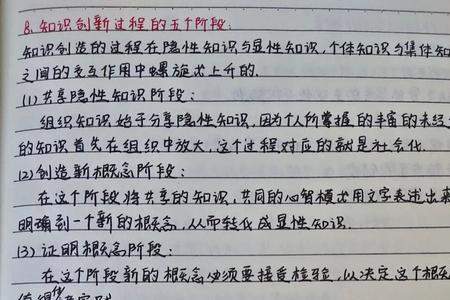 8. 知识创新过程的五个阶段:
知识创造的过程在隐性知识与显性知识,个体知识与集体知
之间的交互作用中螺旋式上升的.
(1) 共享隐性知识阶段:
组织知识始于分享隐性知识,因为个人所掌握的丰富的未经
的知识首先在组织中放大,这个过程对应的就是社会化.
(2) 创造新概念阶段:
在这个阶段将共享的知识,共同的心智模式用文字表述出来
明确到一个新的概念,从而转化成显性知识.
(3) 证明概念阶段:
在这个阶段新的概念必须要接受检验,以决定这个概念
值